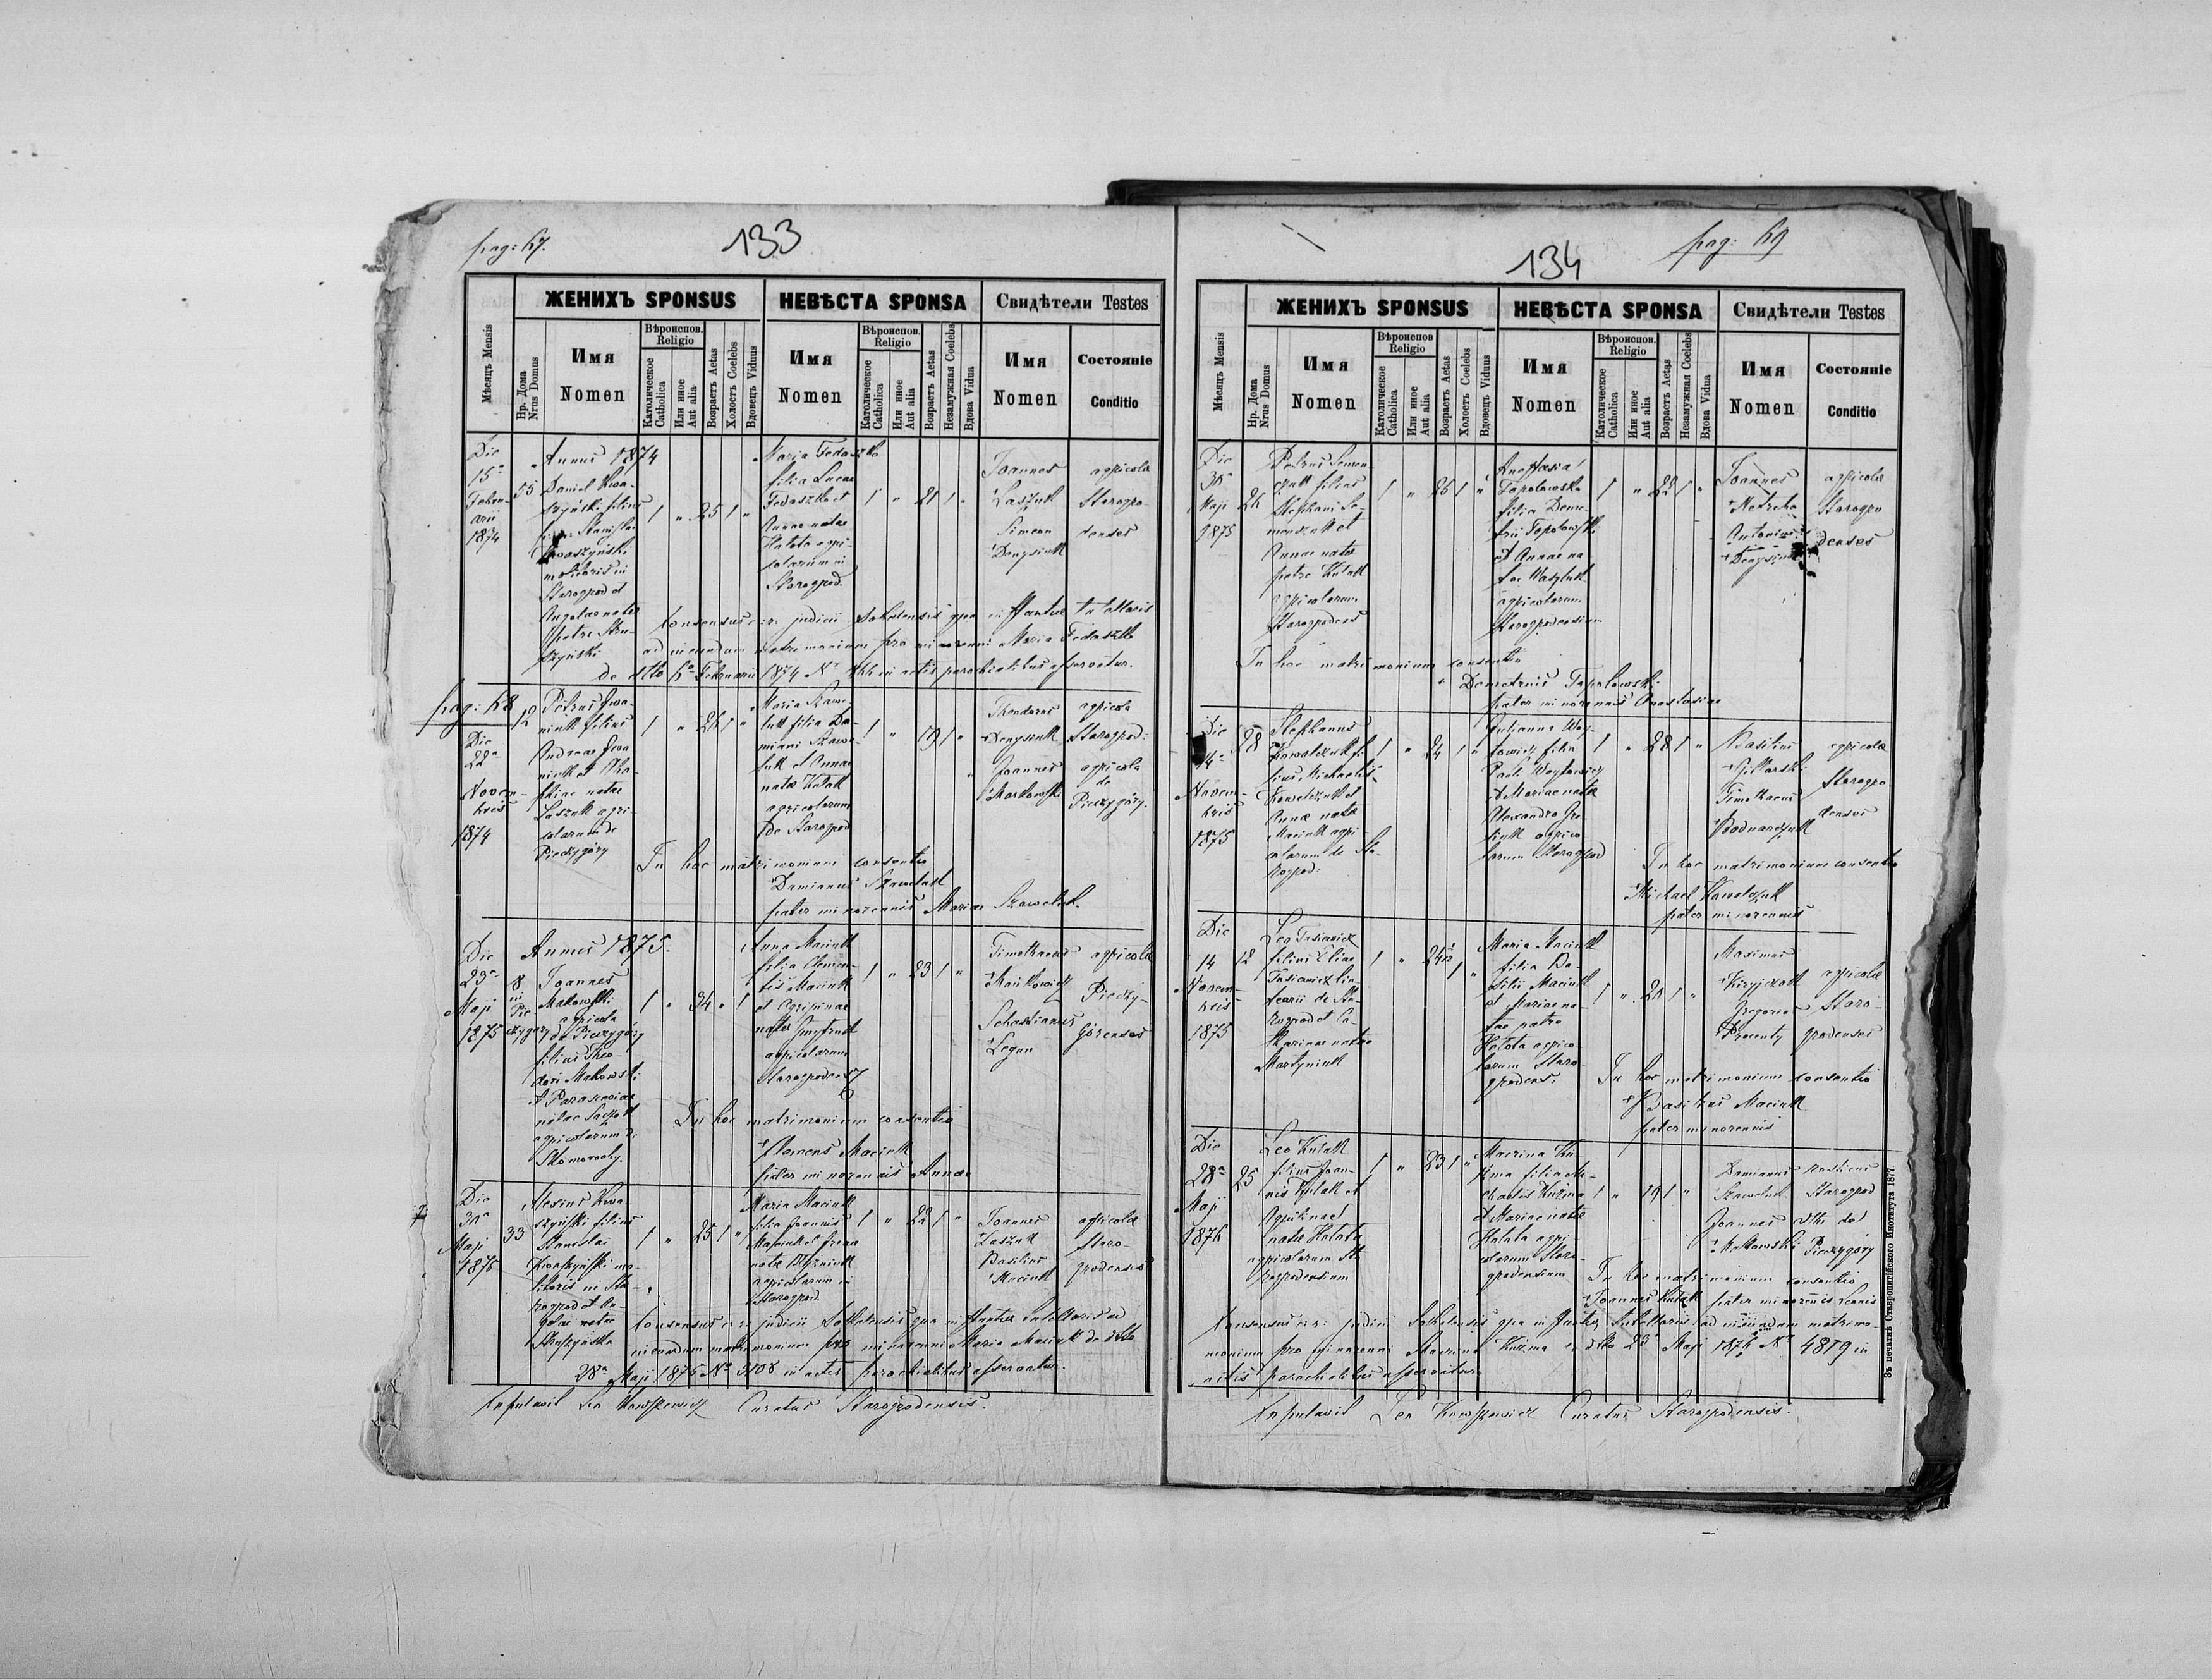 pag: 67.
133
Мѣсяцъ Mensis
Нр. Дома Nrus Domus
ЖЕНИХЪ SPONSUS
НЕВѢСТА SPONSA
Свидѣтели Testes
Имя
Nomen
Вѣроиспов.
Religio
Католическое Catholica
Или иное Aut alia
Возрастъ Aetas
Холостъ Coelebs
Вдовецъ Viduus
Имя
Nomen
Вѣроиспов.
Religio
Католическое Catholica
Или иное Aut alia
Возрастъ Aetas
Незамужная Coelebs
Вдова Vidua
Имя
Nomen
Состоянie
Conditio
Die
15a
Febru-
arii
1874
55
Annus 1874
Daniel Kwa-
szyński filius
Stanislai
Kwaszyński
molitoris in
Starogrod et
Angelae natae
patre Stru-
szyński
1 " 25 1 "
Maria Fedaszko
filia Lucae
Fedaszko et
Annae natae
Hatota agri-
colarum in
Starogrod.
1 " 21 1 "
Joannes
Laszuk
Simeon
Denysiuk
agricolae
Starogro
denses
Consensus judicii Sokolensis qua instantiae tutelaris
ad ineundum matrimonium pro minorenni Maria Fedaszko
de dtto 6a Februarii 1874 No in actis parochialibus asservatur.
pag: 68
Die
22a
Novem-
bris
1874
12
Petrus Iwa-
niuk filius
Andreae Iwa
niuk et
natae
Laszuk agri-
colarum de
Pieczygóry
1 " 26 1 "
Maria Szawe-
luk filia Da-
miani Szawe-
luk et Annae
natae Kulak
agricolarum
de Starogrod
1 " 19 1 "
Theodorus
Denysiuk
Joannes
Markowski
agricola
Starogrod:
agricola
de
Pieczygóry.
In hoc matrimonium consentio
+Damianus Szaweluk
pater minorennis Mariae Szaweluk.
Die
23a
Maji
1875
8
in
Pie-
czygóry
Annus 1875.
Joannes
Makowski
agricola
de Pieczygóry
filius Theo-
dori Makowski
et Parasceviae
natae
agricolarum de
Skomorochy.
1 " 34 " 1
Anna Maciuk
filia Clemen-
tis Maciuk
et Agripinae
natae
agricolarum
Starogrodens
1 " 23 1 "
Timotheus
Sebastianus
Legun
agricolae
Pieczy-
górenses
In hoc matrimonium consentio
+Clemens Maciuk
pater minorennis Annae
Die
30a
Maji
1875
33
Alexius Kwa-
szyński filius
Stanislai
Kwaszyński mo-
litoris in Sta-
rogrod et An-
gelae natae
Struszyńska
1 " 25 1 "
Maria Maciuk
filia Joannis
Maciuk et Irena
natae
agricolarum in
Starogrod.
1 " 22 1 "
Joannes
Laszuk
Basilius
Maciuk
agricolae
Staro-
grodenses
Consensus judicii Sokolensis qua instantiae tutelaris ad
ineundum matrimonium pro minorenni Maria Maciuk de dtto
28a Maji 1875 No 3108 in actis parochialibus asservatur.
Copulavit Leo Curatus Starogrodensis.
pag: 69
134
Мѣсяцъ Mensis
Нр. Дома Nrus Domus
ЖЕНИХЪ SPONSUS
НЕВѢСТА SPONSA
Свидѣтели Testes
Имя
Nomen
Вѣроиспов
Religio
Католическое Catholica
Или иное Aut alia
Возрастъ Aetas
Холостъ Coelebs
Вдовецъ Viduus
Имя
Nomen
Вѣроиспов.
Religio
Католическое Catholica
Или иное Aut alia
Возрастъ Aetas
Незамужная Coelebs
Вдова Vidua
Имя
Nomen
Состоянie
Conditio
Die
30a
Maji
1875
26
Petrus Semen-
czuk filius
Stephani Se-
menczuk et
Annae natae
patre Kulak
agricolarum
Starogrodens
1 " 26 1 "
Anastasia
Topolowska
filia Deme-
trii Topolowski
et Annae na
tae Wasyluk
agricolarum
Starogrodensium
1 " 22 1 "
Joannes
Antonius
+Denysiuk
agricolae
Starogro
denses
In hoc matrimonium consentio
+ Demetrius Topolowski
pater minorennis Anastasiae
Die
14a
Novem-
bris
1875
28
Stephanus
Kowalczuk fi-
lius Michaelis
Kowalczuk et
Annae natae
Maciuk agri-
colarum de Sta-
rogrod:
1 " 24 1 "
Julianna Woj-
towicz filia
Pauli Woytowicz
et Mariae natae
Alexandro
agrico
larum Starogrod
1 " 28 1 "
Basilius
Timotheus
Bodnarczuk
agricolae
Starogro
denses
In hoc matrimonium consentio
+Michael Kowalczuk
pater minorennis
Die
14
Novem-
bris
1875
12
Leo Tosiewicz
filius Eliae
de Sta-
rogrod et Ca-
tharinae natae
Martyniuk
1 " 24 1 "
Maria Maciuk
filia Ba-
silii Maciuk
et Mariae na-
tae patre
Hatota agrico-
larum Staro-
grodens:
1 " 21 1 "
Maximus
Gregorius
Procenty
agricolae
Staro-
grodenses
In hoc matrimonium consentio
+Basilius Maciuk
pater minorennis
Die
28a
Maji
1876
25
Leo Kulak
filius Joan-
nis Kulak et
natae Hatota
agricolarum Sta
rogrodensium
1 " 23 1 "
Macrina Ku
zma filia Mi-
chaelis Kuzma
et Mariae natae
Hatota agri
colarum Staro-
grodensium
1 " 19 1 "
Damianus
Szaweluk
Joannes
Makowski
rusticus
Starogrod
dtto de
Pieczygóry
In hoc matrimonium consentio
+Joannes Kulak pater minorennis Leonis
Consensus judicii Sokolensis qua instantiae tutelaris ad ineundam matrimo-
nium pro minorenni Macrina Kuzma de dtto 23a Maji 1876 No 4819 in
actis parochialibus asservatur.
Copulavit Leo Curatus Starogrodensis.
Зъ печатнѣ Ставропигійского Института 1877.